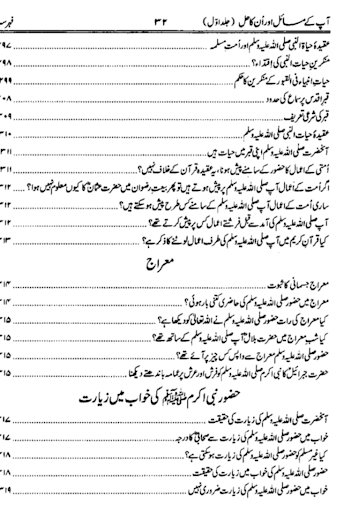 آپ کے مسائل اور اُن کا حل (جلد اوّل) ۳۲ فہرست
عقیدۂ حیاۃ النبی صلی اللہ علیہ وسلم اور اُمت مسلمہ ۲۹۷
منکرینِ حیات النبی کی اقتداء؟ ۲۹۸
حیاتِ انبیاء فی القبور کے منکرین کا حکم ۲۹۹
قبرِ اقدس پر سماع کی حدود ۳۰۸
قبر کی شرعی تعریف ۳۰۹
عقیدۂ حیات النبی صلی اللہ علیہ وسلم ۳۱۰
آنحضرت صلی اللہ علیہ وسلم اپنی قبر میں حیات ہیں ۳۱۱
اُمتی کے اعمال کا حضور کے سامنے پیش ہونا، یہ عقیدہ قرآن کے خلاف نہیں؟ ۳۱۱
اگر اُمت کے اعمال آپ صلی اللہ علیہ وسلم پر پیش ہوتے ہیں تو پھر بیعتِ رضوان میں حضرت عثمانؓ کا کیوں معلوم نہیں ہوا؟ ۳۱۲
ساری اُمت کے اعمال آپ صلی اللہ علیہ وسلم کے سامنے کس طرح پیش ہوسکتے ہیں؟ ۳۱۲
آپ صلی اللہ علیہ وسلم کی آمد سے قبل فرشتے اعمال کس پر پیش کرتے تھے؟ ۳۱۲
کیا قرآنِ کریم میں آپ صلی اللہ علیہ وسلم کی طرف اعمال لوٹنے کا ذکر ہے؟ ۳۱۳
معراج
معراج جسمانی کا ثبوت ۳۱۴
معراج میں حضور صلی اللہ علیہ وسلم کی حاضری کتنی بار ہوئی؟ ۳۱۴
کیا معراج کی رات حضور صلی اللہ علیہ وسلم نے اللہ تعالیٰ کو دیکھا ہے؟ ۳۱۵
کیا شبِ معراج میں حضرت بلالؓ آپ صلی اللہ علیہ وسلم کے ساتھ تھے؟ ۳۱۵
حضور صلی اللہ علیہ وسلم معراج سے واپس کس چیز پر آئے تھے؟ ۳۱۵
حضرت جبرائیل کا نبی اکرم صلی اللہ علیہ وسلم کو فرش اور عرش پر عمامہ باندھتے دیکھنا ۳۱۵
حضور نبی اکرم ﷺ کی خواب میں زیارت
آنحضرت صلی اللہ علیہ وسلم کی زیارت کی حقیقت ۳۱۷
خواب میں حضور صلی اللہ علیہ وسلم کی زیارت سے صحابی کا درجہ ۳۱۷
کیا غیر مسلم کو حضور صلی اللہ علیہ وسلم کی زیارت ہوسکتی ہے؟ ۳۱۸
حضور صلی اللہ علیہ وسلم کی خواب میں زیارت کی حقیقت ۳۱۸
خواب میں حضور صلی اللہ علیہ وسلم کی زیارت ضروری نہیں ۳۱۹